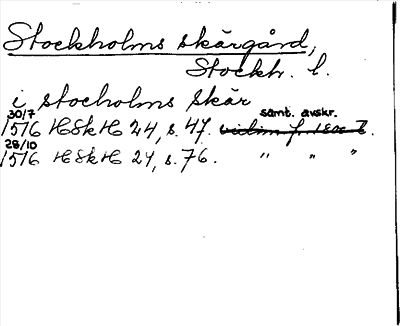 Stockholms skärgård,
Stockh. l.
i stocholms skär
30/7 samt. avskr.
1516 HSkH 24, s. 47.
28/10
1516 HSkH 24, s. 76. " " "